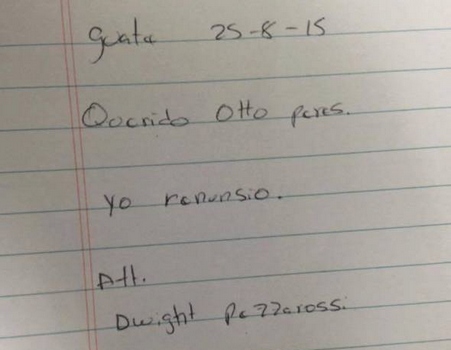 Guate 25-8-15
Querido Otto peres.
yo renunsio.
Att.
Dwight Pezzarossi